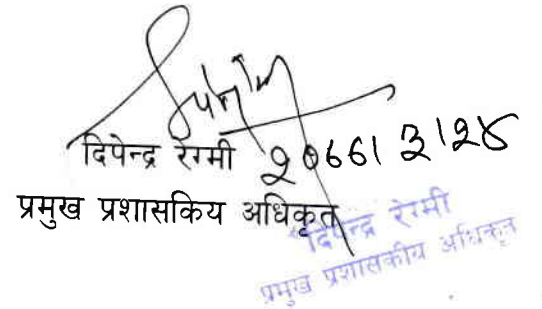 दिपेन्द्र रेग्मी २०७७।३।२४
प्रमुख प्रशासकिय अधिकृत
दिपेन्द्र रेग्मी
प्रमुख प्रशासकीय अधिकृत